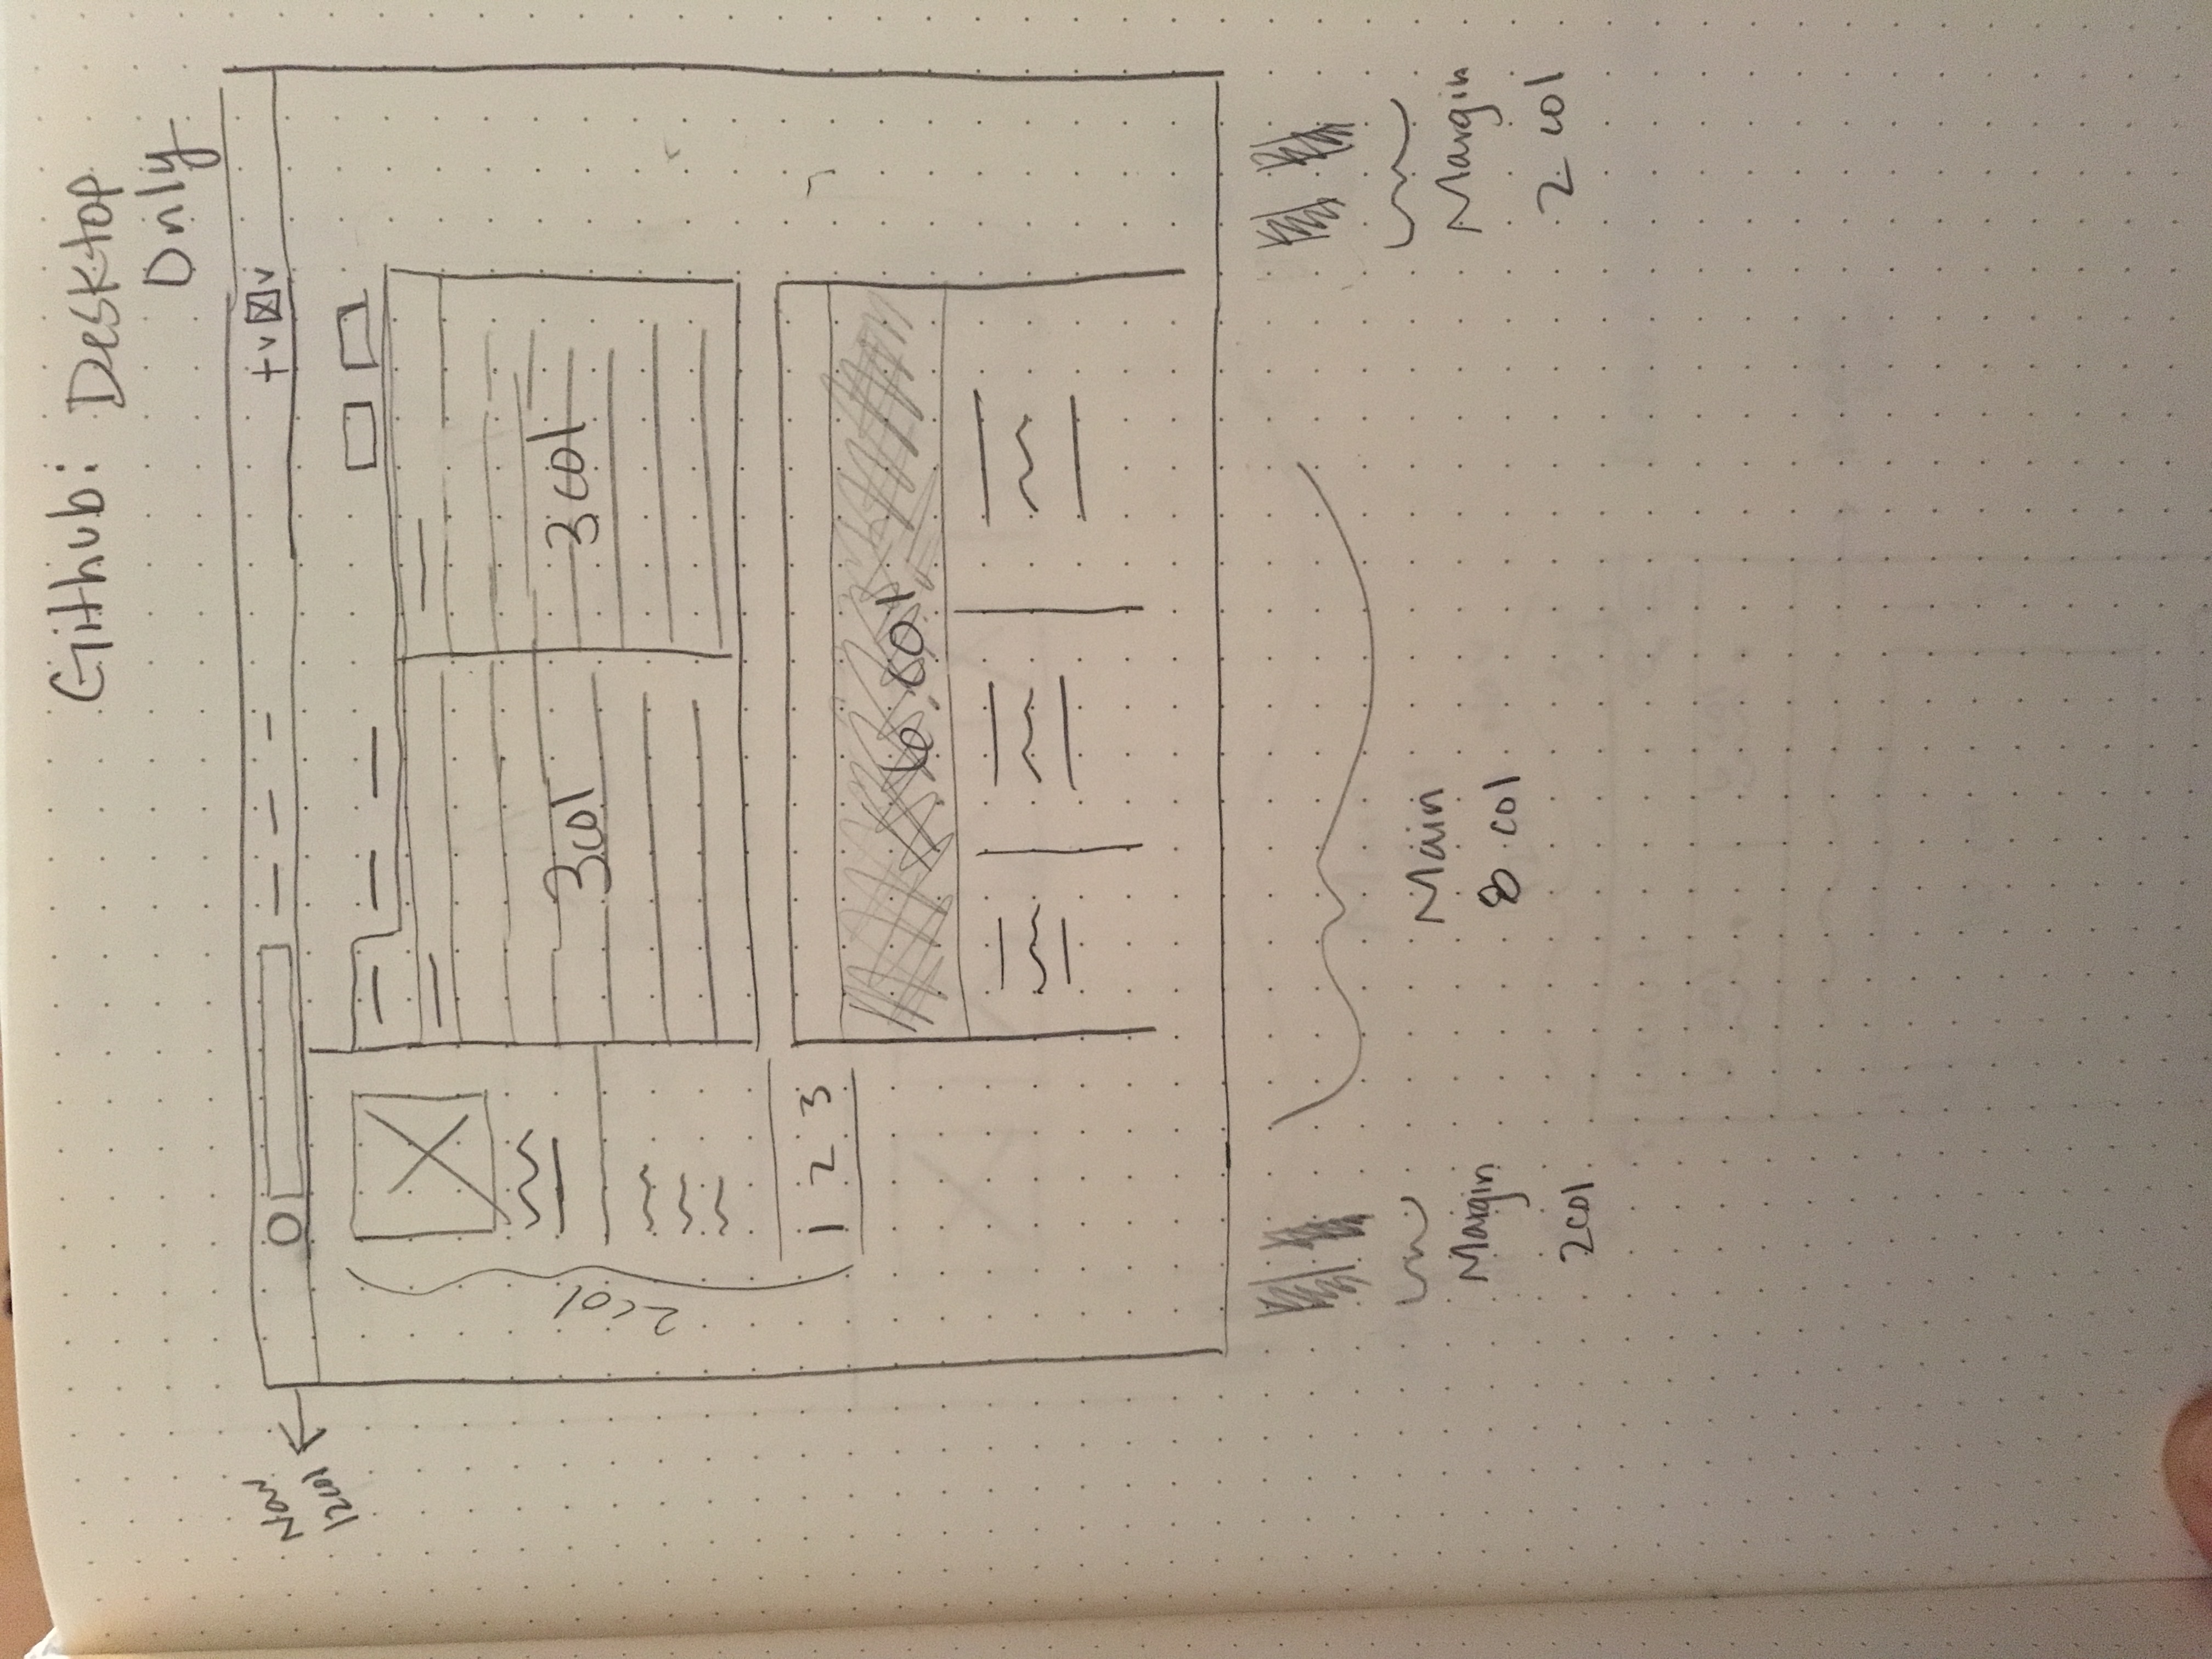 Github: Desktop
Only
Nav
12col
+ v v
2 col
3col
3 col
1 2 3
6 col
Margin
2col
Main
8 col
Margin
2 col